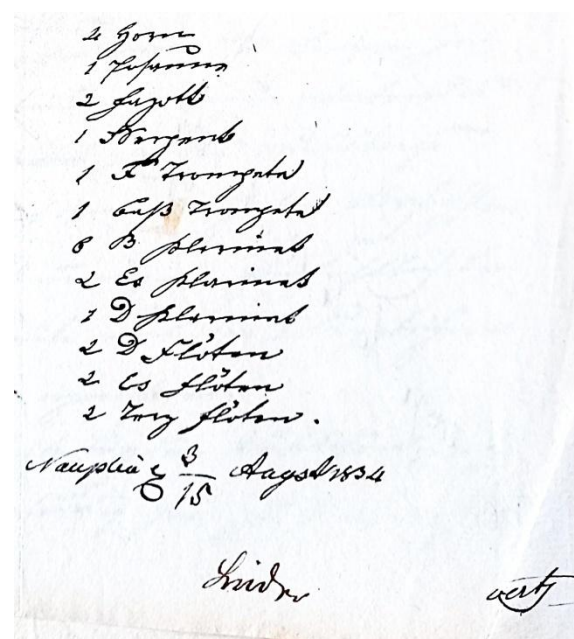 2 Horn
1 Posaune
2 Fagott
1 Serpent
1 F Trompete
1 Baß Trompete
8 B Klarinet
2 Es Klarinet
1 D Klarinet
2 D Flöten
2 Es Flöten
2 Terz Flöten.
Nauplia 3/15 August 1834